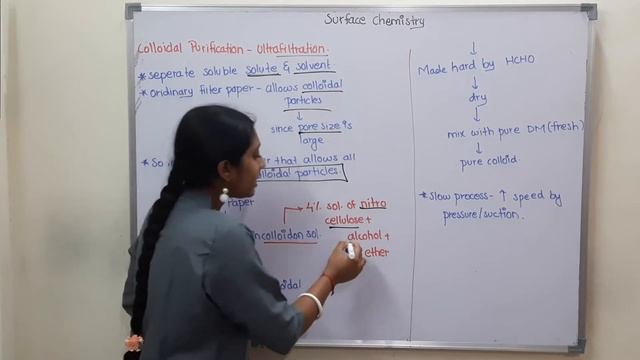 Surface Chemistry
Colloidal Purification - Ultrafiltration.
* seperate soluble solute & solvent.
* oridinary filter paper - allows colloidal
particles
↓
since pore size is
large
* So
that allows all
colloidal particles.
Paper
→ 4% sol. of nitro
cellulose +
in colloidon sol.
alcohol +
ether
↓
Made hard by HCHO
↓
dry
↓
mix with pure DM (fresh)
↓
pure colloid.
* Slow process - ↑ speed by
pressure/suction.